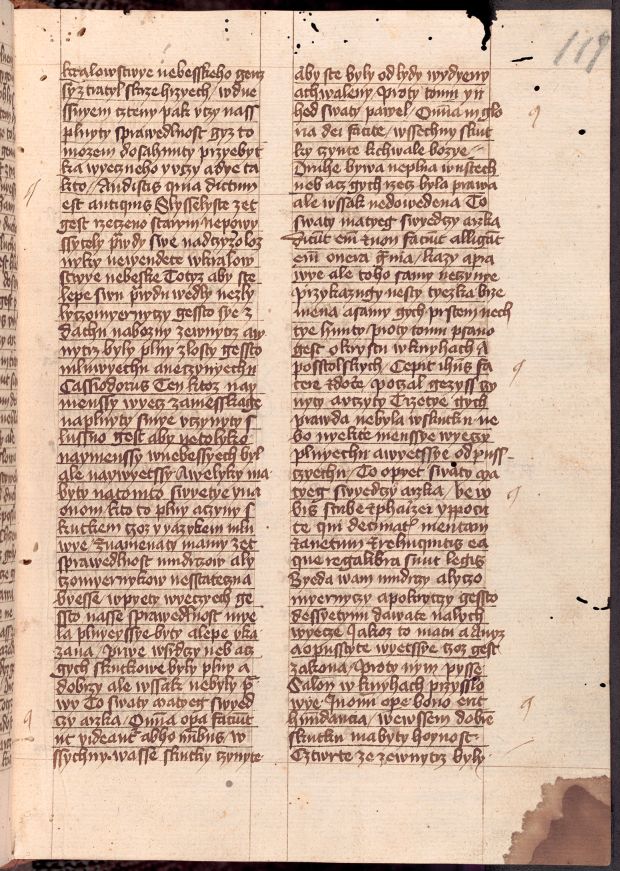 119
kralowstwye nebesskeho genz
sy ztratyl skrze hrzyech, w dne
ssnyem czteny pak vczy nass
plnyty sprawedlnost gyz to
mozem dosahnuty przyebyt
ka wyeczneho y vczy a dye ta
kto / Audistis quia dictum
est antiquis Slysselyste zet
gest rzeczeno starym nepowy
nyky newendete w kralow
stwye nebeske Totyz aby ste
lepe swu prwdu wedly nezly
lyczomyernyczy gessto sye z
dachu nabozny zewnytrz aw
nytrz byly plny zlosty gessto
mluwyechu a neczynyechu
Cassiodorus Ten ktoz nay
menssy wyecz zamesskage
naplnyty smye vczynyty s
lussno gest aby netolyko
naymenssy w nebessyech byl
ale naywyetssy A welyky ma
byty na tomto swyetye yna
onom kto to plny a czyny s
kutkem czoz yazykem mlu
wye / Znamenaty mamy zet
sprawedlnost mudrzow aly
czomyernykow nestateczna
byesse w pyety wyeczech ge
ssto nasse sprawedlnost mye
la plneyssye byty a lepe vka
zana / Prwe w srdczy neb acz
gych skutkowe byly plny a
dobrzy ale wssak nebyly
wy To swaty Matyeg swyed
czy arzka / Omnia opera faciunt
ut videant ab hominibus w
ssychny wasse skutky czynyte
aby ste byly od lydy wydyeny
a chwaleny Proty tomu yn
hed swaty pawel / Omnia in glo
ria dei facite / wssechny skut
ky czynte k chwale bozye
Druhe bywa neplna w ustech
neb acz gych rzecz byla prawa
ale wssak nedowedena To
swaty matyeg swyedczy arzka
Dicunt enim et non faciunt alligant
enim onera gravia / Kazy apra
wye ale toho samy neczynye
przykazugy nesty tyezka brze
mena a samy gych prstem nech
tye hnuty / Proty tomu psano
gest o krystu w knyhach A
posstolskych / Cepit ihus fa
cere et docere / Poczal gezyss czy
nyty a vczyty Trzetye gych
prawda nebyla w skutku ne
bo nyekake menssye wyeczy
plnyechu a wyetssye odpuss
czyechu / To opyet swaty Ma
tyeg swyedczy arzka / Ve vo
bis scribe et pharizei ypocri
te qui decimatis mentam
et anetum et relinquitis ea
que regalibra sunt legis
Byeda wam mudrzy a lyczo
myernyczy a pokrytczy gessto
dessyetynu dawate z malych
wyeczy Jakoz to matu a kmyn
a opusstyte wyetssye czoz gest
zakona / Proty nym pysse
Salon w knyhach przyslo
wye / In omni opere bono erit
habundancia / we wssem dobrem
skutku ma byty hoynost
Cztwrte ze zewnytrz byly